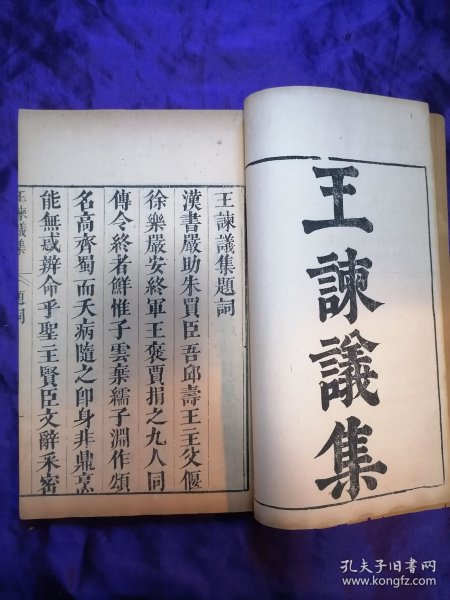 王諫議集
王諫議集題詞
漢書嚴助朱買臣吾邱壽王主父偃
徐樂嚴安終軍王襃賈捐之九人同
傳令終者鮮惟子雲棄繻子淵作頌
名高齊蜀而夭病隨之卽身非鼎烹
能無慼辨命乎聖主賢臣文辭采密
王諫議集
題詞
孔夫子旧书网
www.kongfz.com